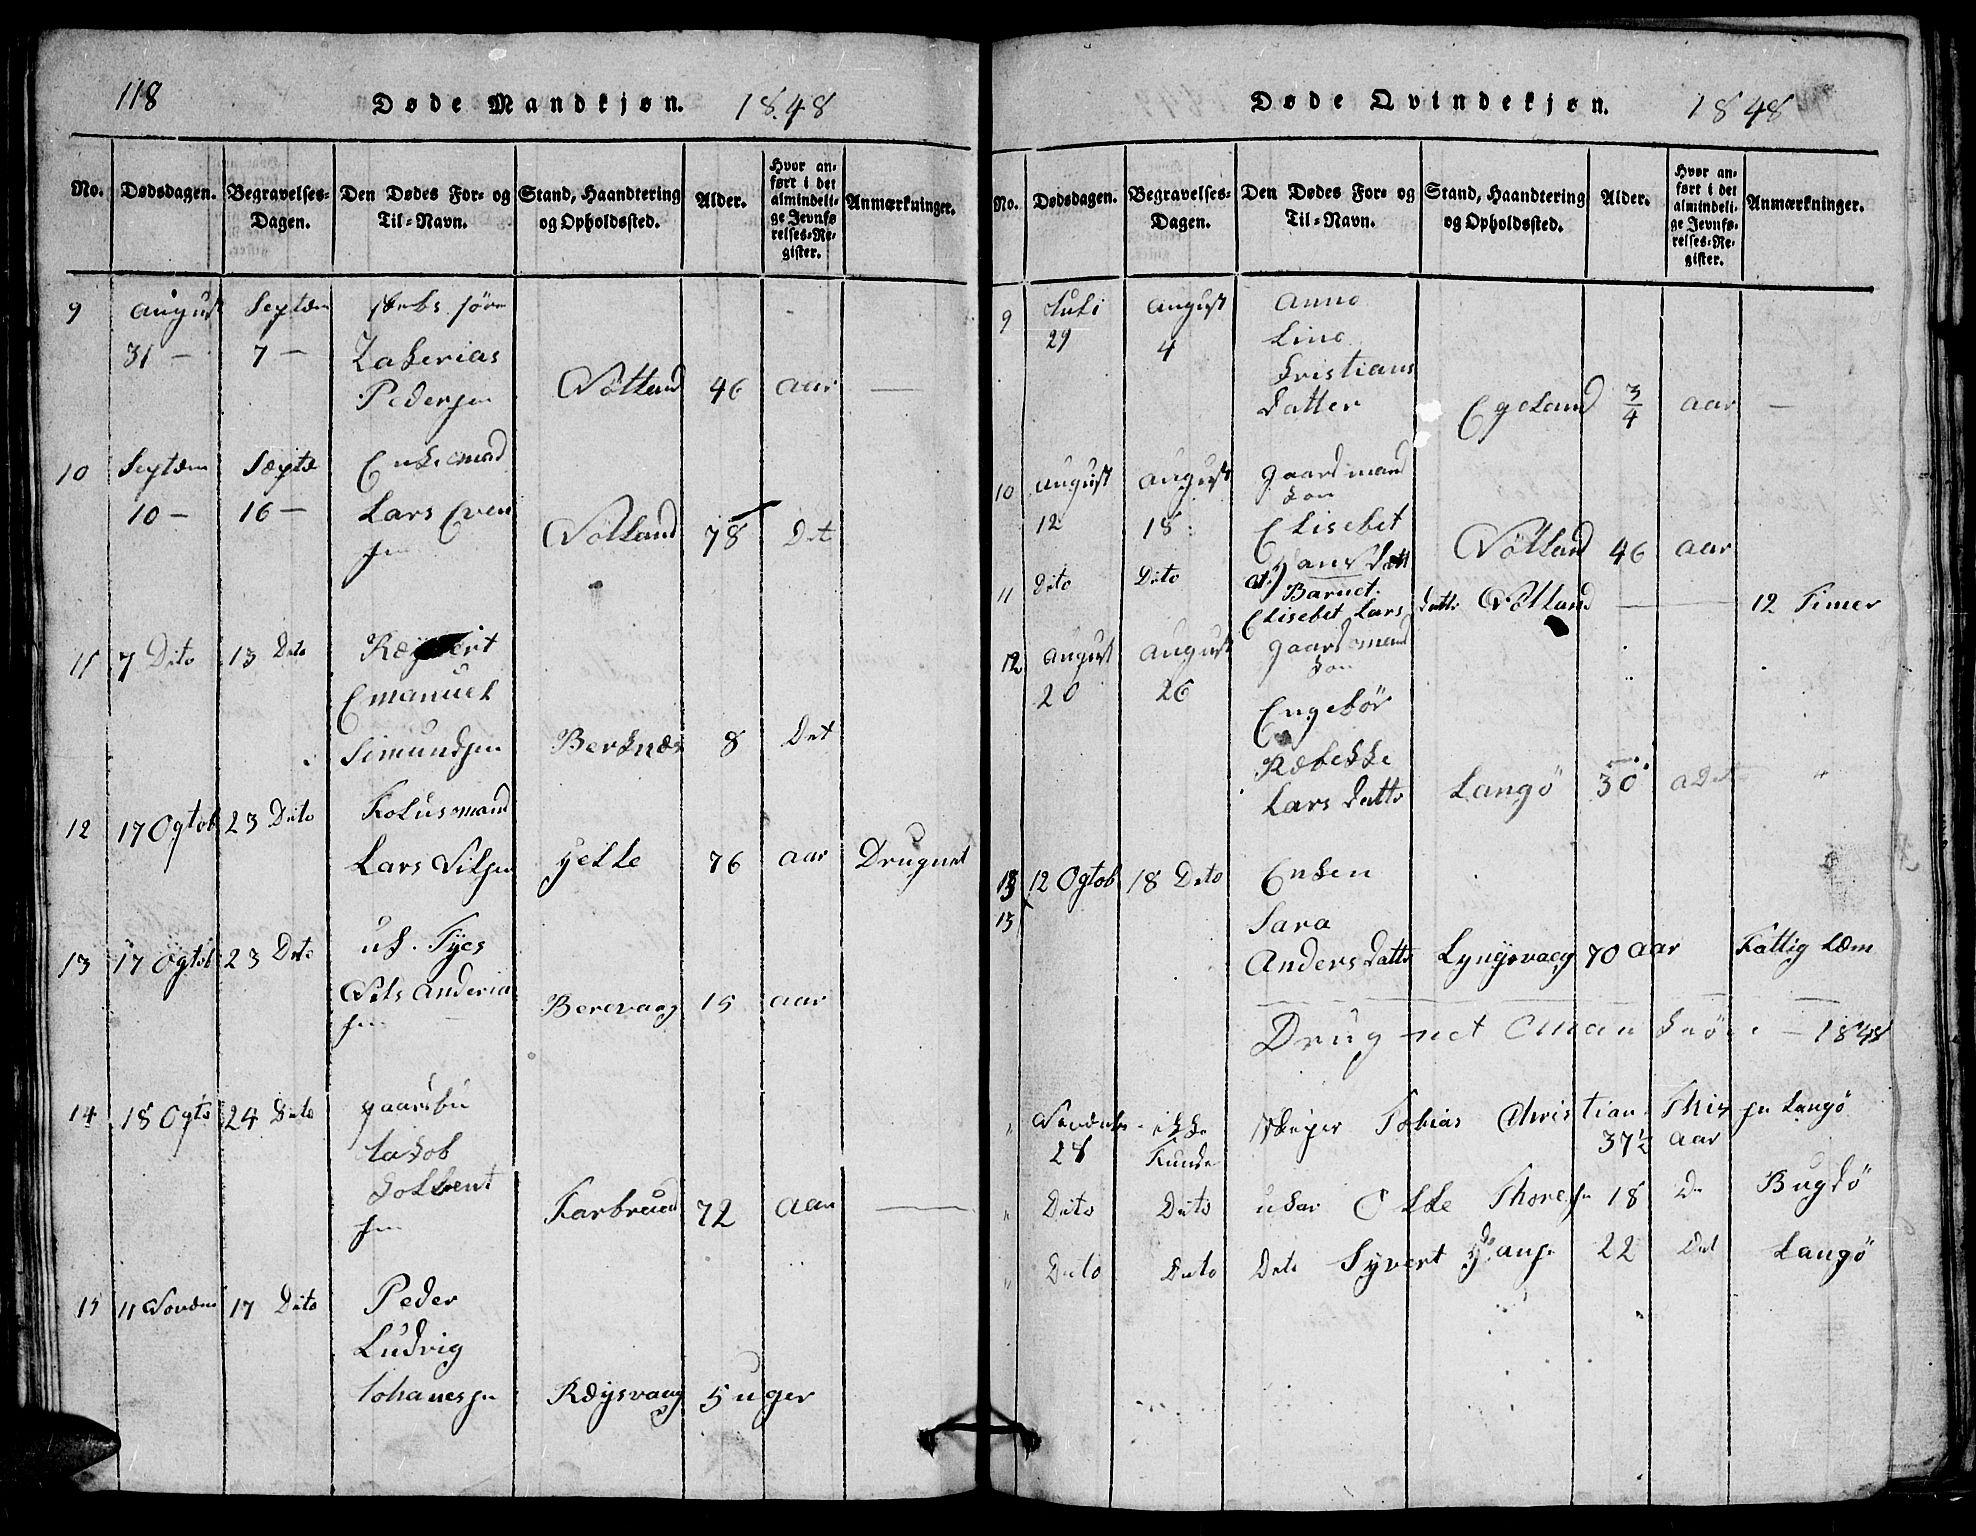 118
Døde Mandkjøn. 1848
No. Dødsdagen. Begravelses-Dagen. Den Dødes For- og Til-Navn. Stand, Haandtering og Opholdssted. Alder. Hvor anført i det almindelige Jevnførelses-Register. Anmærkninger.
9 august Septem
31 — 7 — Zakerias
Pedersen Nötland 46 aar —
10 Septem Septe Enkemad
10 — 16 — Lars Even
sen Nötland 78 Det
11 7 Dito 13 Dito
Emanuel
Simundsen Berknæs 8 Det
12 17 Ogtob 23 Dito Folusmand
Lars Nilsen yelle 76 aar Drugnet
13 17 Ogtob 23 Dito uk. Fyes
Nils anderia
sen Berevaag 15 aar
14 18 Ogto 24 Dito gaardbu
Iakob
sen Farbrued 72 aar —
15 11 Novem 17 Dito Peder
Ludvig
Iohanesen Ræysvaag 5 uger
Døde Qvindekjøn. 1848
No. Dødsdagen. Begravelses-Dagen. Den Dødes For- og Til-Navn. Stand, Haandtering og Opholdssted. Alder. Hvor anført i det almindelige Jevnførelses-Register. Anmærkninger.
9 Iuli august anne
29 4 Line
Kristians
datter Egeland 3/4 aar —
10 august august gaardmand
kon
12 18 Elisebet
Hans datt Nötland 46 aar
11 Dito Dito Barnet
Elisebet Lars datte Nötland — 12 Timer
12 august august gaardmand
kon
20 26 Engebör
Ræbekke
Lars datte Langö 30
13 12 Ogtob 18 Dito Enken
13 Sara
Anders datte Lyngsvaag 70 aar Fattig Læm
Drugnet 1848
" ikke Tobias Christian Langö
28 Funde 37½ aar
" Dito Dito Thoresn 18 D Bugdö
" Dito Dito Dito Syvert 22 Det Langö